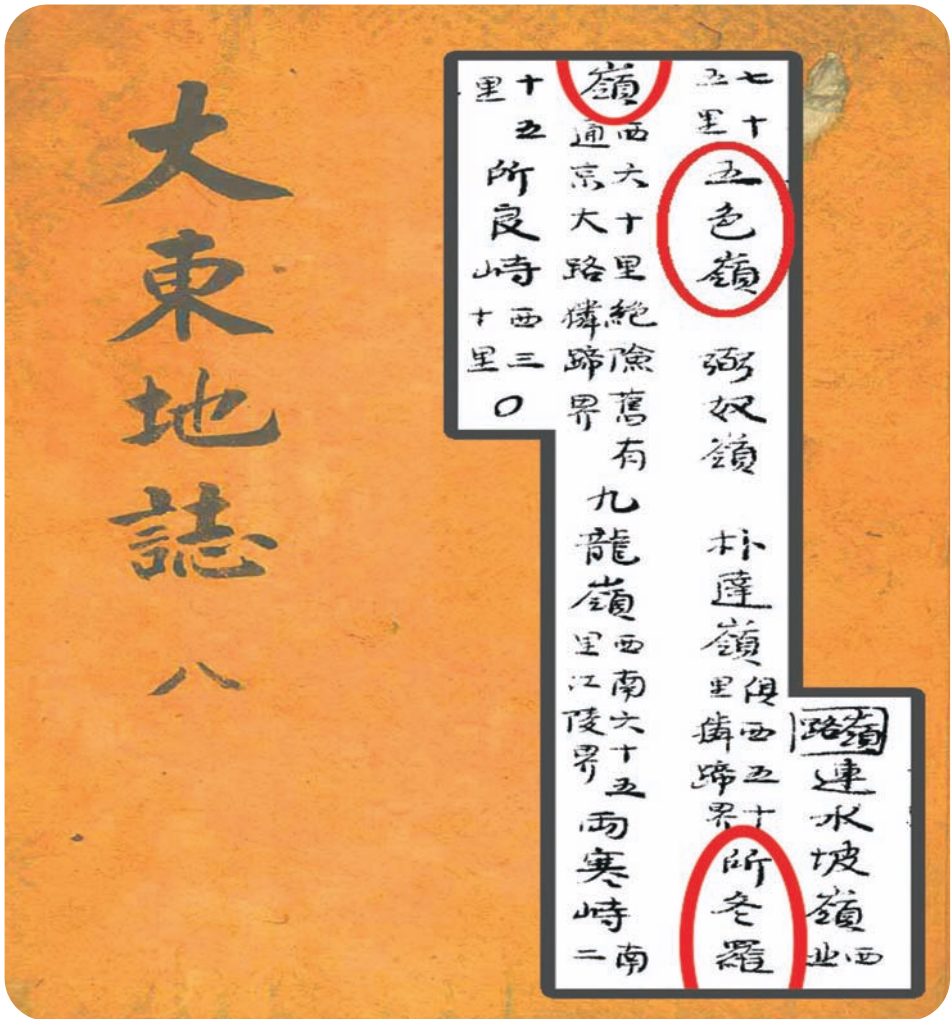 大東地誌 八
嶺路 連水坡嶺 西北
七十五里 五色嶺 弼奴嶺 朴達嶺 俱西五十里獜蹄界 所冬羅
嶺 西六十里絶險舊有通京大路獜蹄界 九龍嶺 西南六十五里江陵界 兩寒峙 南二
十五里 所良峙 西三十里 ○